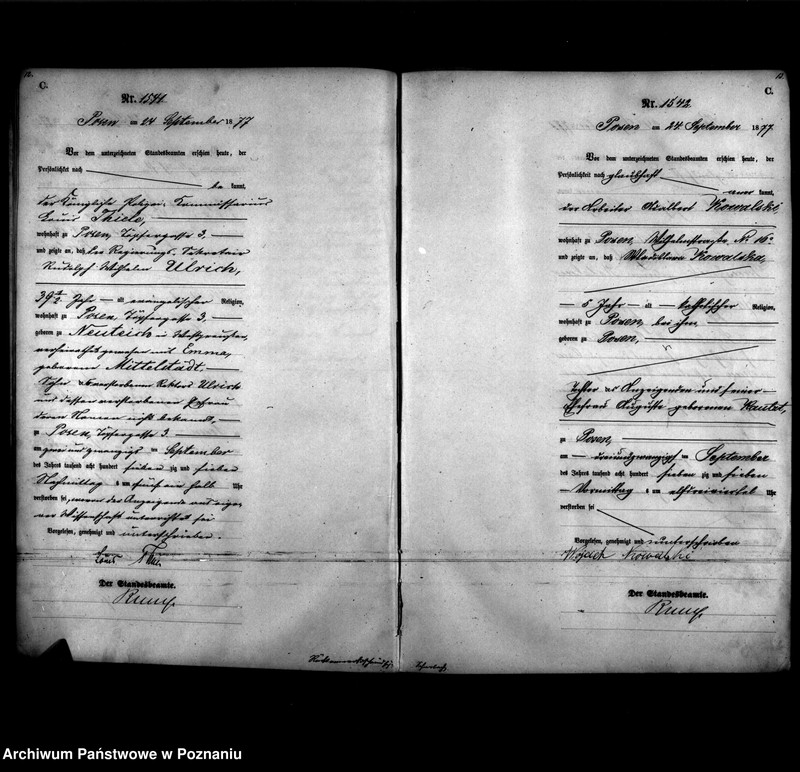 12.
C.
Nr. 1541.
Posen am 24 September 1877
Vor dem unterzeichneten Standesbeamten erschien heute, der
Persönlichkeit nach
be kannt,
der Königliche Polizei-Kommissarius
Louis Thiele,
wohnhaft zu Posen, Töpfergasse 3,
und zeigte an, daß der Regierungs-Sekretair
Rudolph Wilhelm Ulrich,
39 1/2 Jahr alt evangelischer Religion,
wohnhaft zu Posen, Töpfergasse 3,
geboren zu Neuteich in Westpreußen,
verheirathet gewesen mit Emma,
geborenen Mittelstädt.
Sohn des verstorbenen Rektors Ulrich
und dessen verstorbenen Ehefrau
deren Namen nicht bekannt,
zu Posen, Töpfergasse 3
am zwei und zwanzigsten September
des Jahres tausend acht hundert sieben zig und sieben
Nachmittag um fünf ein halb Uhr
verstorben sei, wovon der Anzeigende aus eige-
ner Wissenschaft unterrichtet sei
Vorgelesen, genehmigt und unterschrieben.
Louis Thiele
Der Standesbeamte.
C.
Nr. 1542.
Posen am 24 September 1877.
Vor dem unterzeichneten Standesbeamten erschien heute, der
Persönlichkeit nach glaubhaft
kannt,
der Arbeiter Adalbert Kowalski,
wohnhaft zu Posen, Wilhelmstraße No 16
und zeigte an, daß Wladislawa Kowalska,
5 Jahr alt katholischer Religion,
wohnhaft zu Posen, bei ihm,
geboren zu Posen,
Tochter des Anzeigenden und seiner
Ehefrau Auguste geborenen
zu Posen,
am dreiundzwanzigsten September
des Jahres tausend acht hundert sieben zig und sieben
Vormittag um elfdreiviertel Uhr
verstorben sei
Vorgelesen, genehmigt und unterschrieben
Wojciech Kowalski
Der Standesbeamte.
Archiwum Państwowe w Poznaniu